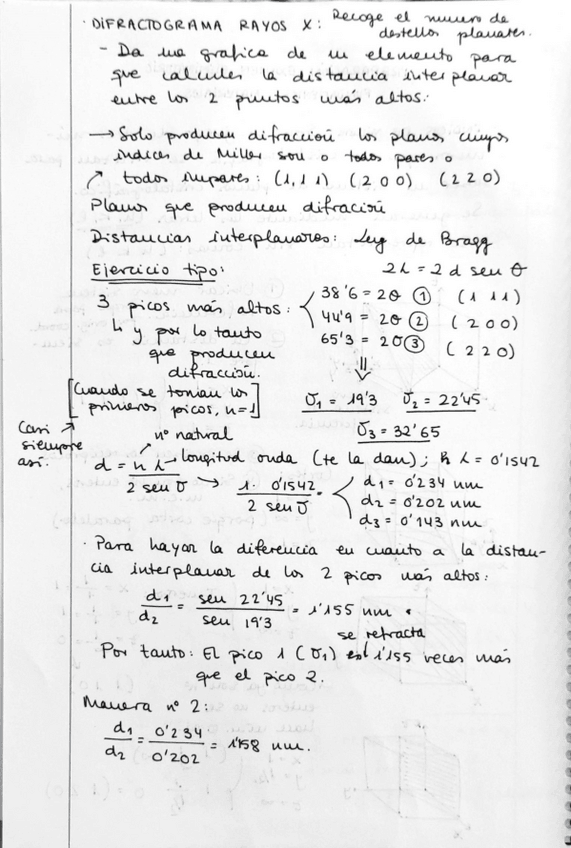 · DIFRACTOGRAMA RAYOS X: Recoge el numero de
destellos planares.
- Da una grafica de un elemento para
que calcules la distancia interplanar
entre los 2 puntos más altos.
→ Solo producen difracción los planos cuyos
índices de Miller son o todos pares o
todos impares: (1,1 1) (2 0 0) (2 2 0)
Planos que producen difracción
Distancias interplanares: Ley de Bragg
Ejercicio tipo: 2λ = 2 d sen θ
3 picos más altos: 38'6 = 2θ ① (1 1 1)
↳ y por lo tanto 44'9 = 2θ ② (2 0 0)
que producen 65'3 = 2θ ③ (2 2 0)
difracción.
[Cuando se toman los
primeros picos, n=1]
Casi siempre así.
θ1 = 19'3 θ2 = 22'45
θ3 = 32'65
nº natural
d = n λ / 2 sen θ longitud onda (te la dan); λ = 0'1542
→ 1 · 0'1542 / 2 sen θ = d1 = 0'234 nm
d2 = 0'202 nm
d3 = 0'143 nm
· Para hayar la diferencia en cuanto a la distan-
cia interplanar de los 2 picos más altos:
d1/d2 = sen 22'45 / sen 19'3 = 1'155 nm.
se refracta
Por tanto: El pico 1 (θ1) 1'155 veces más
que el pico 2.
Manera nº 2:
d1/d2 = 0'234 / 0'202 = 1'158 nm.